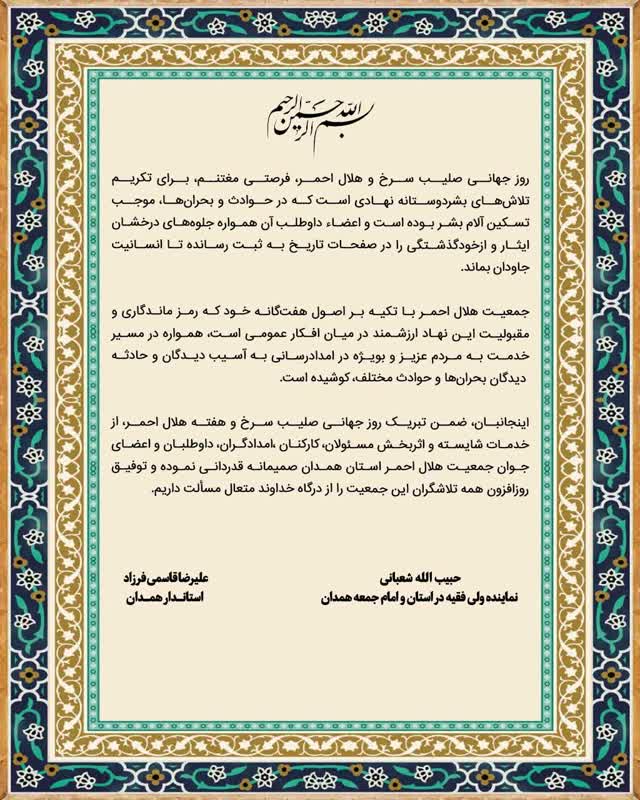 بسم الله الرحمن الرحیم
روز جهانی صلیب سرخ و هلال احمر، فرصتی مغتنم، برای تکریم
تلاش‌های بشردوستانه نهادی است که در حوادث و بحران‌ها، موجب
تسکین آلام بشر بوده است و اعضاء داوطلب آن همواره جلوه‌های درخشان
ایثار و ازخودگذشتگی را در صفحات تاریخ به ثبت رسانده تا انسانیت
جاودان بماند.
جمعیت هلال احمر با تکیه بر اصول هفت‌گانه خود که رمز ماندگاری و
مقبولیت این نهاد ارزشمند در میان افکار عمومی است، همواره در مسیر
خدمت به مردم عزیز و بویژه در امدادرسانی به آسیب دیدگان و حادثه
دیدگان بحران‌ها و حوادث مختلف، کوشیده است.
اینجانبان، ضمن تبریک روز جهانی صلیب سرخ و هفته هلال احمر، از
خدمات شایسته و اثربخش مسئولان، کارکنان ،امدادگران، داوطلبان و اعضای
جوان جمعیت هلال احمر استان همدان صمیمانه قدردانی نموده و توفیق
روزافزون همه تلاشگران این جمعیت را از درگاه خداوند متعال مسألت داریم.
حبیب الله شعبانی
نماینده ولی فقیه در استان و امام جمعه همدان
علیرضا قاسمی فرزاد
استاندار همدان